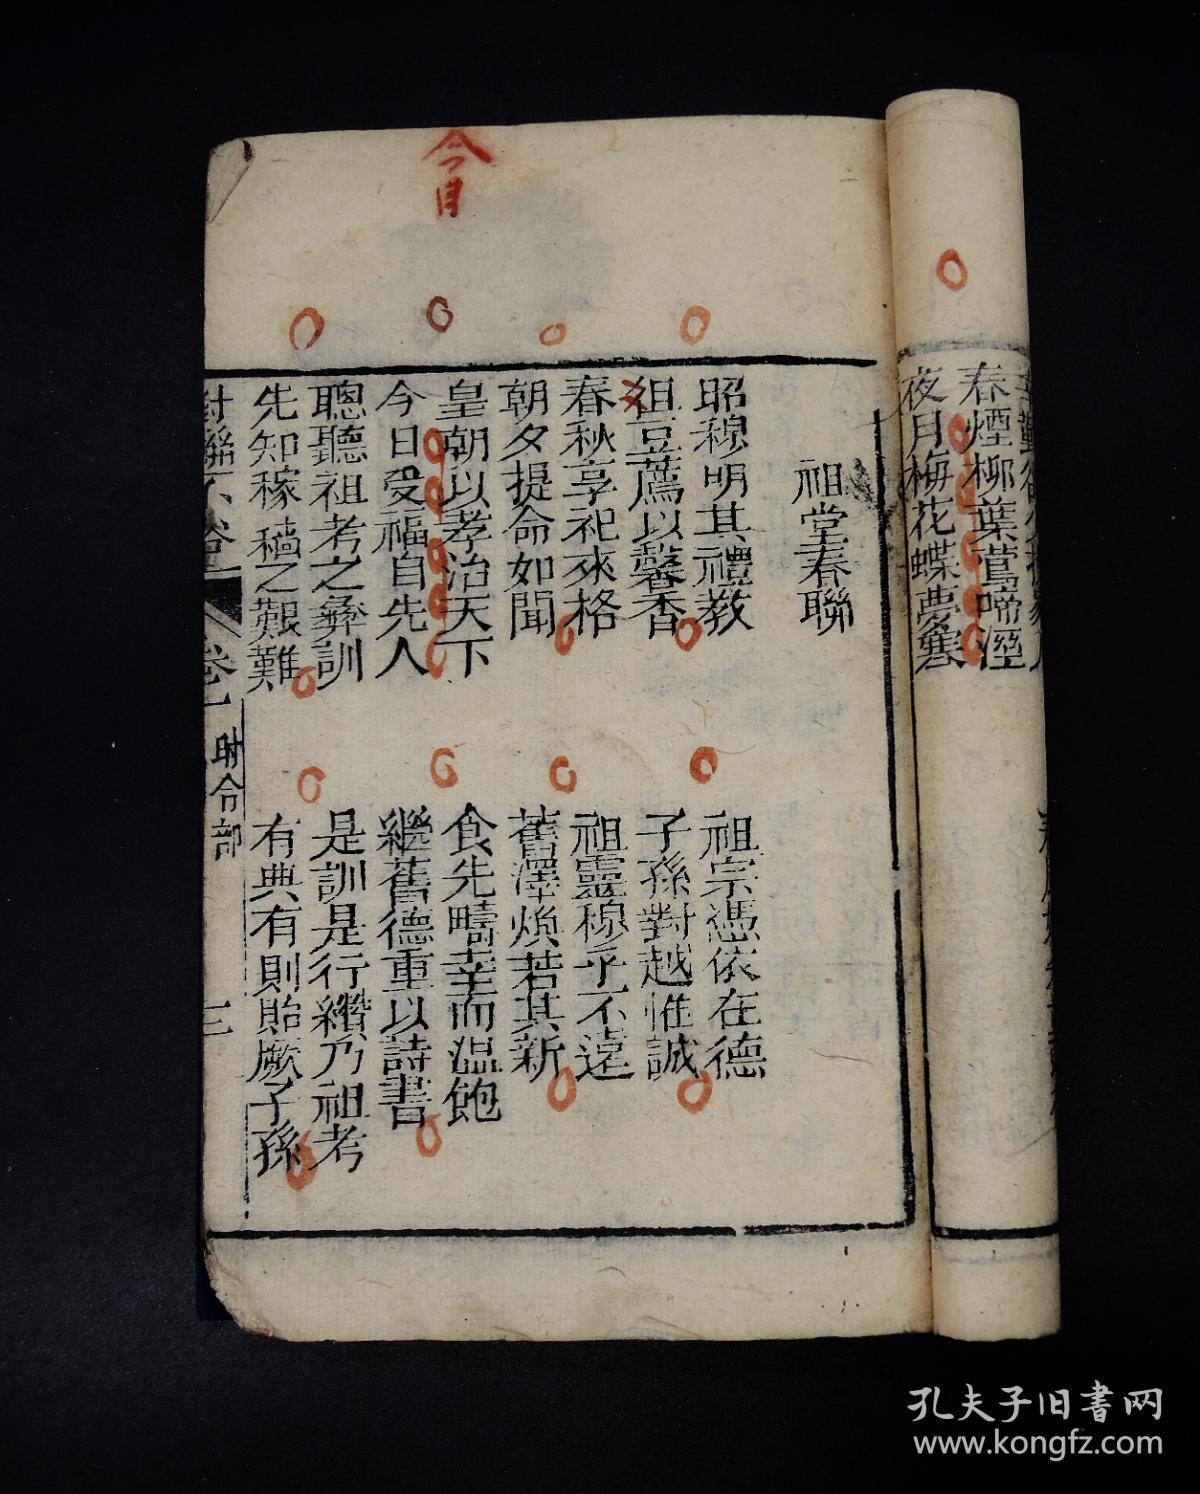 春煙柳葉鶯啼溼
夜月梅花蝶夢寒
祖堂春聯
昭穆明其禮教
俎豆薦以馨香
春秋享祀來格
朝夕提命如聞
皇朝以孝治天下
今日受福自先人
聰聽祖考之彝訓
先知稼穡之艱難
祖宗憑依在德
子孫對越惟誠
祖靈穆乎不遠
舊澤煥若其新
食先疇幸而溫飽
繼舊德重以詩書
是訓是行纘乃祖考
有典有則貽厥子孫
對聯不俗 卷一 時令部 三
今日
孔夫子旧书网
www.kongfz.com